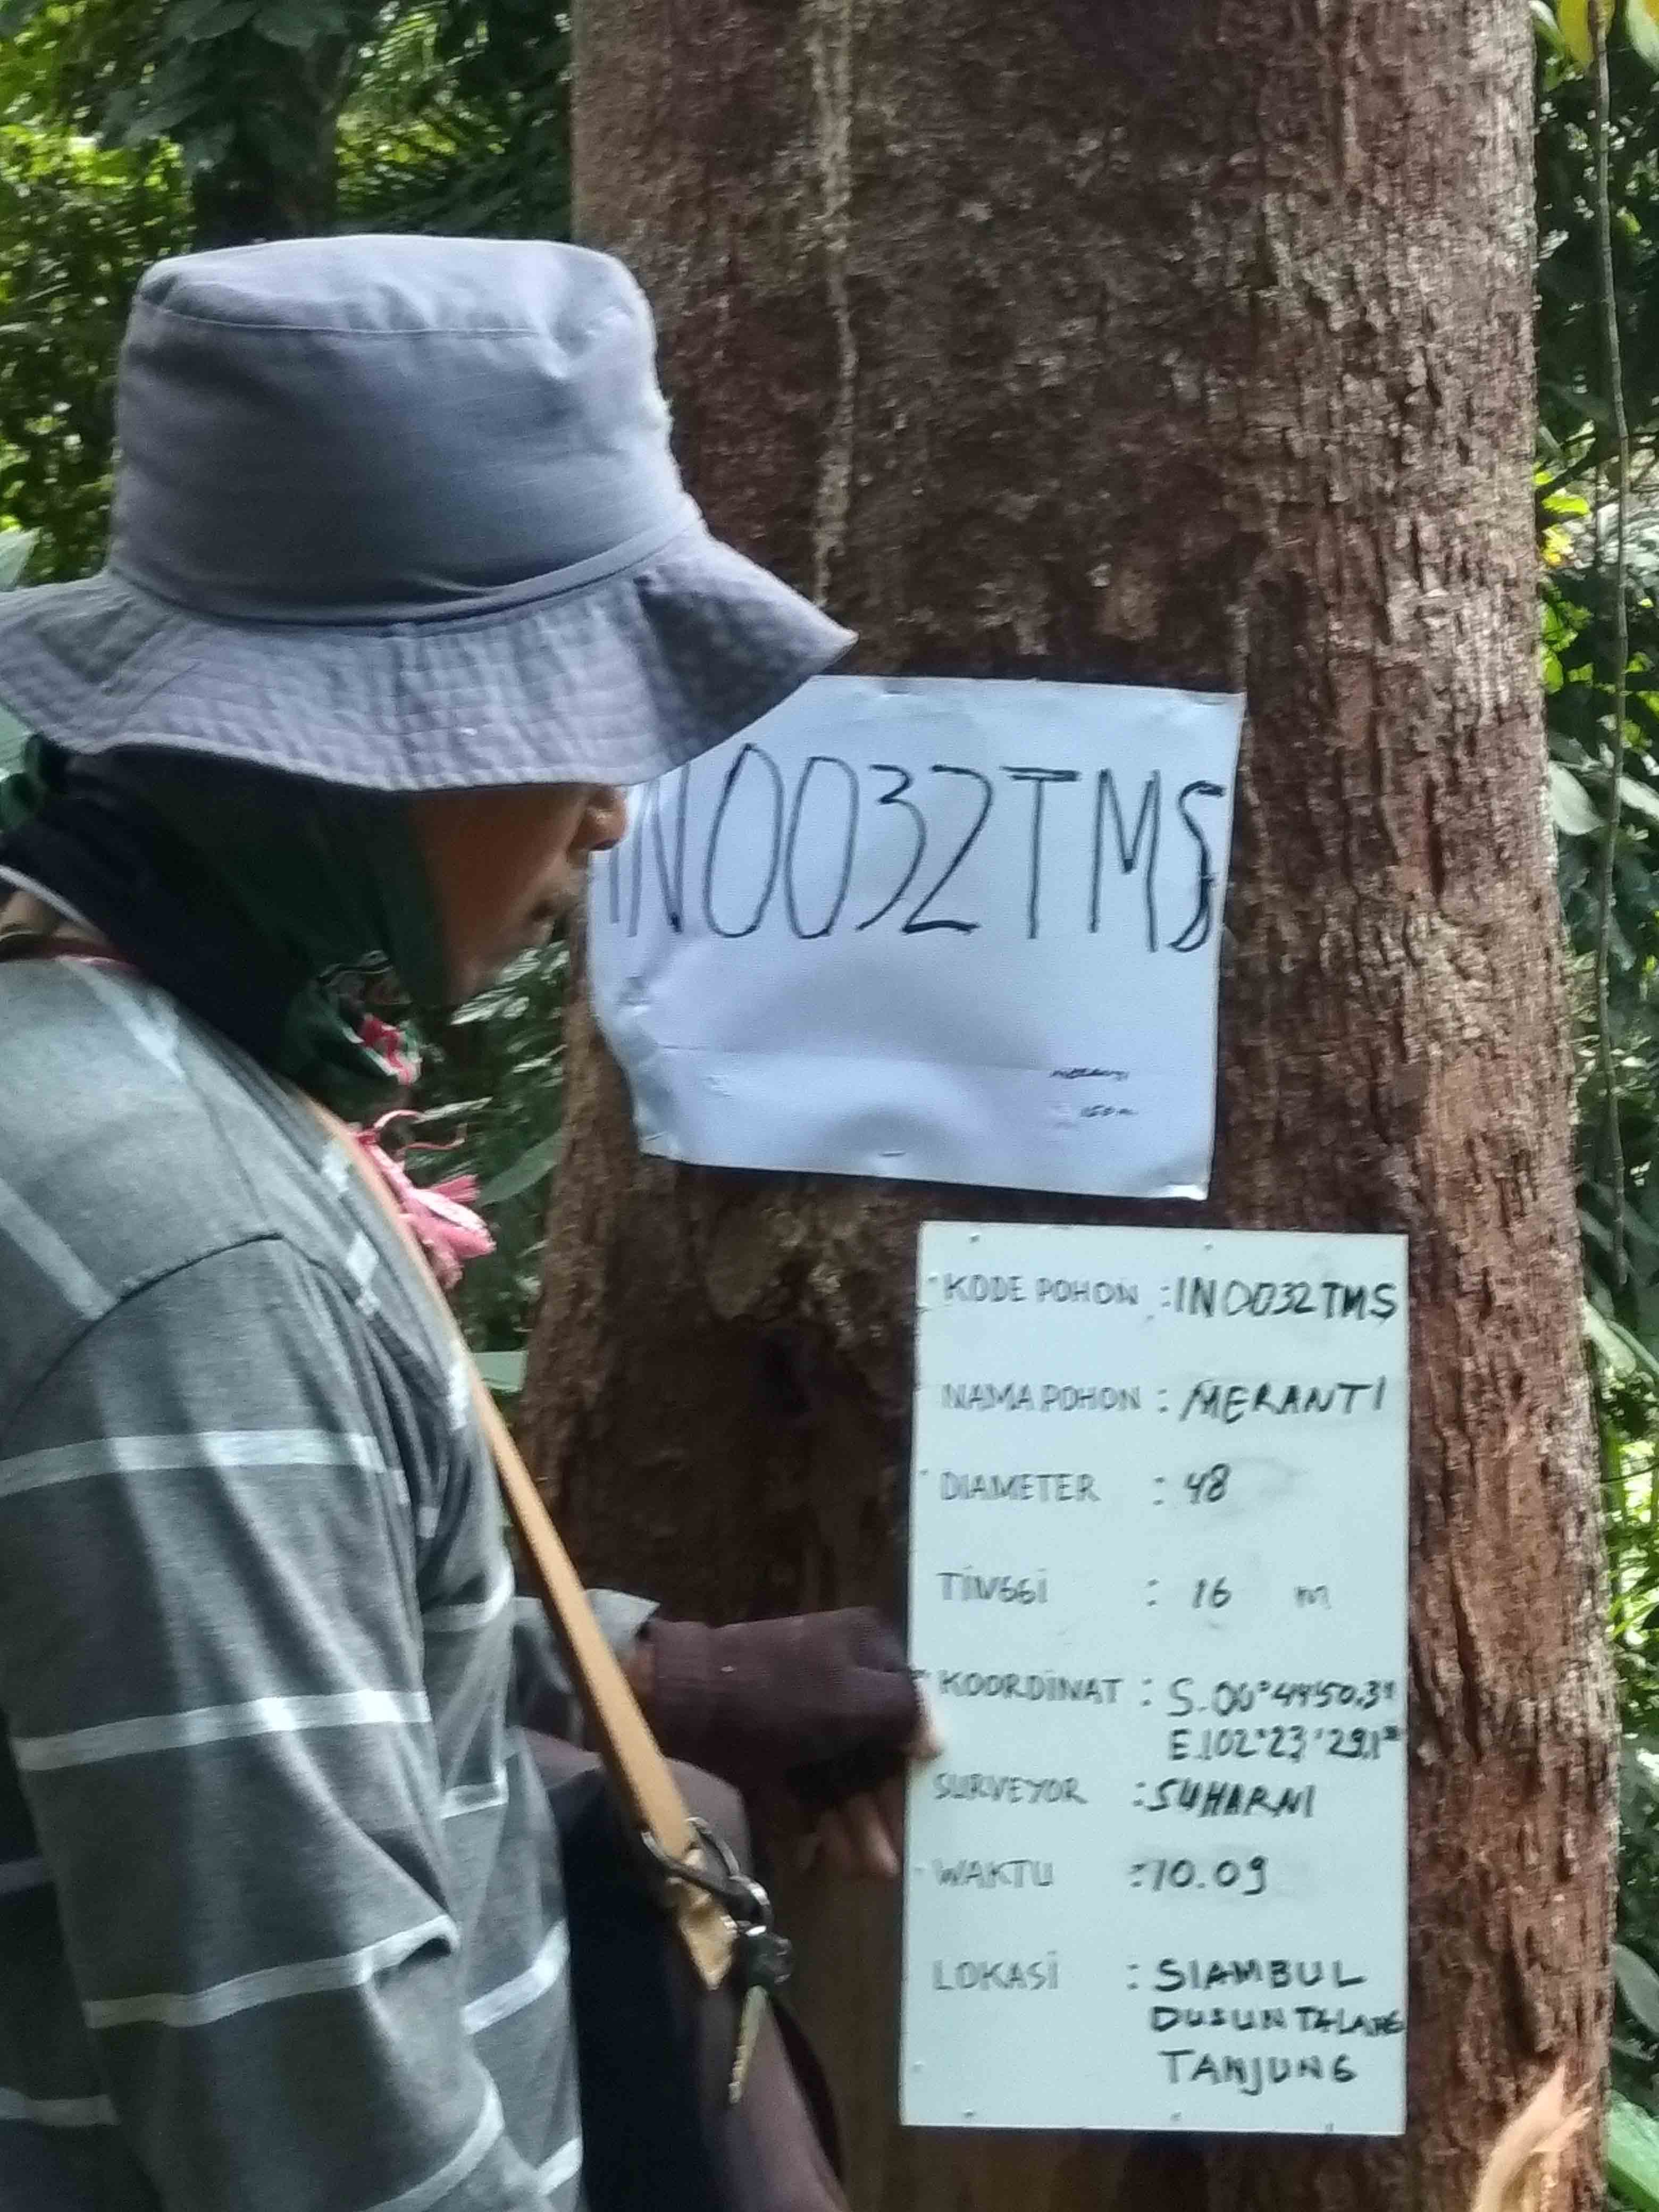 IN0032TMS
MERANTI
KODE POHON : IN0032TMS
NAMA POHON : MERANTI
DIAMETER : 48
TINGGI : 16 m
KOORDINAT : S.00°44'50.3"
E.102°23'29.1"
SURVEYOR : SUHARNI
WAKTU : 10.09
LOKASI : SIAMBUL
DUSUN TALANG
TANJUNG